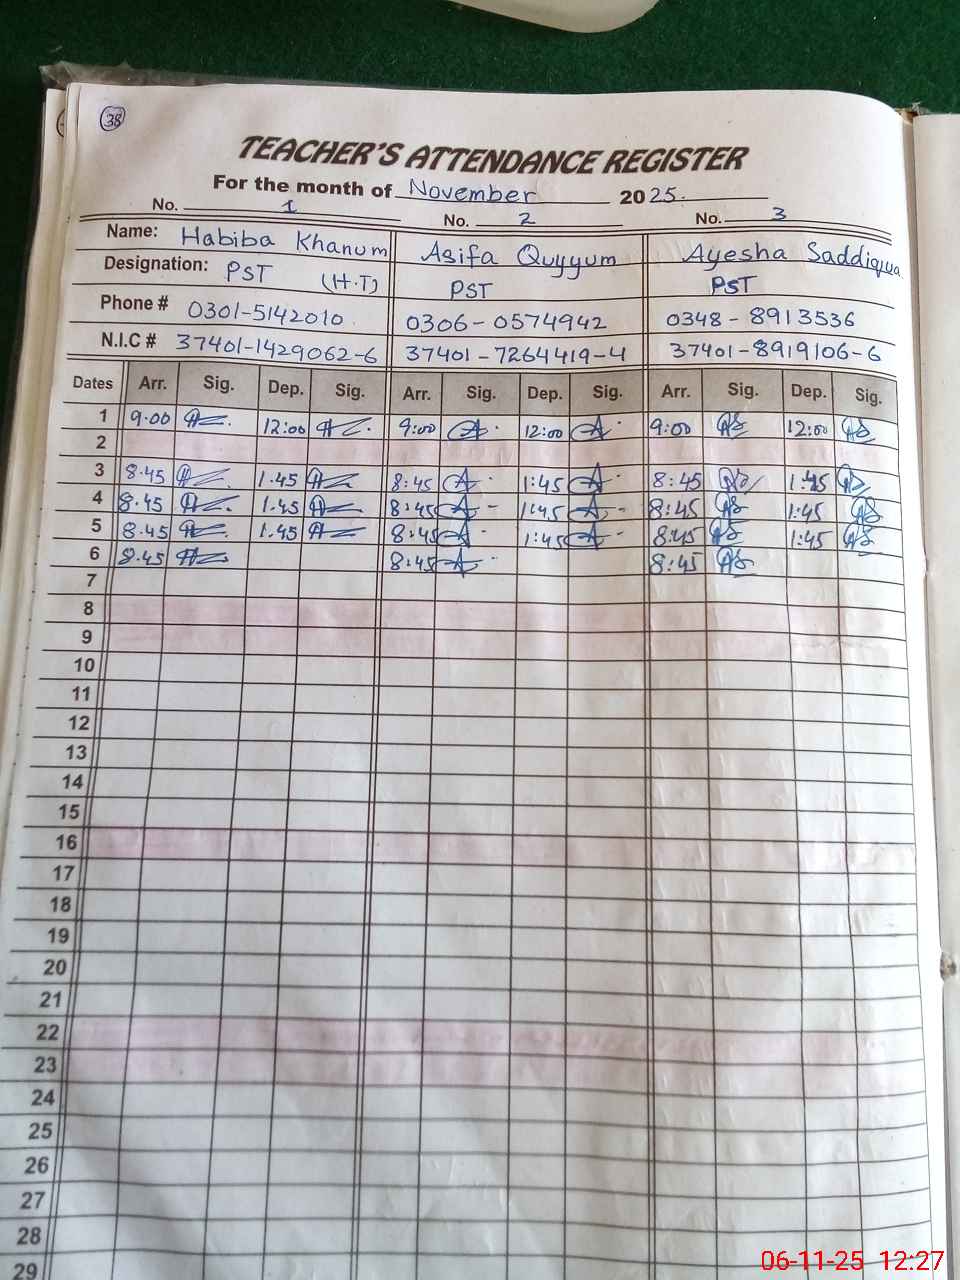 38
TEACHER'S ATTENDANCE REGISTER
For the month of November 2025.
No. 1 No. 2 No. 3
Name: Habiba Khanum Asifa Quyyum Ayesha Saddiqua
Designation: PST (H.T) PST PST
Phone # 0301-5142010 0306-0574942 0348-8913536
N.I.C # 37401-1429062-6 37401-7264419-4 37401-8919106-6
Dates Arr. Sig. Dep. Sig. Arr. Sig. Dep. Sig. Arr. Sig. Dep. Sig.
1 9.00 12:00 9:00 12:00 9:00 12:00
2
3 8.45 1.45 8:45 1:45 8:45 1:45
4 8.45 1.45 8:45 1:45 8:45 1:45
5 8.45 1.45 8:45 1:45 8:45 1:45
6 8.45 8:45 8:45
7
8
9
10
11
12
13
14
15
16
17
18
19
20
21
22
23
24
25
26
27
28
29
06-11-25 12:27